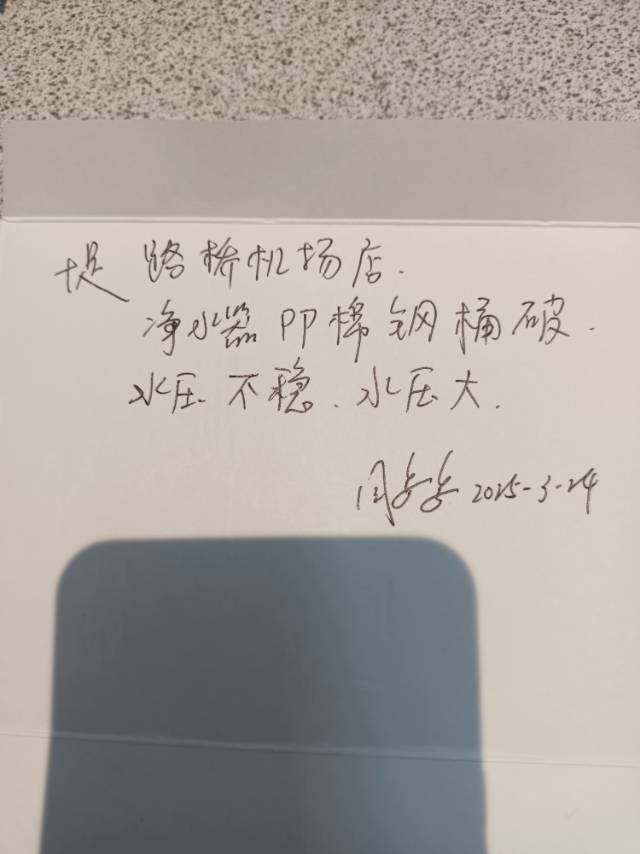 路桥机场店.
净水器PP棉钢桶破.
水压不稳.水压大.
2025-3-24